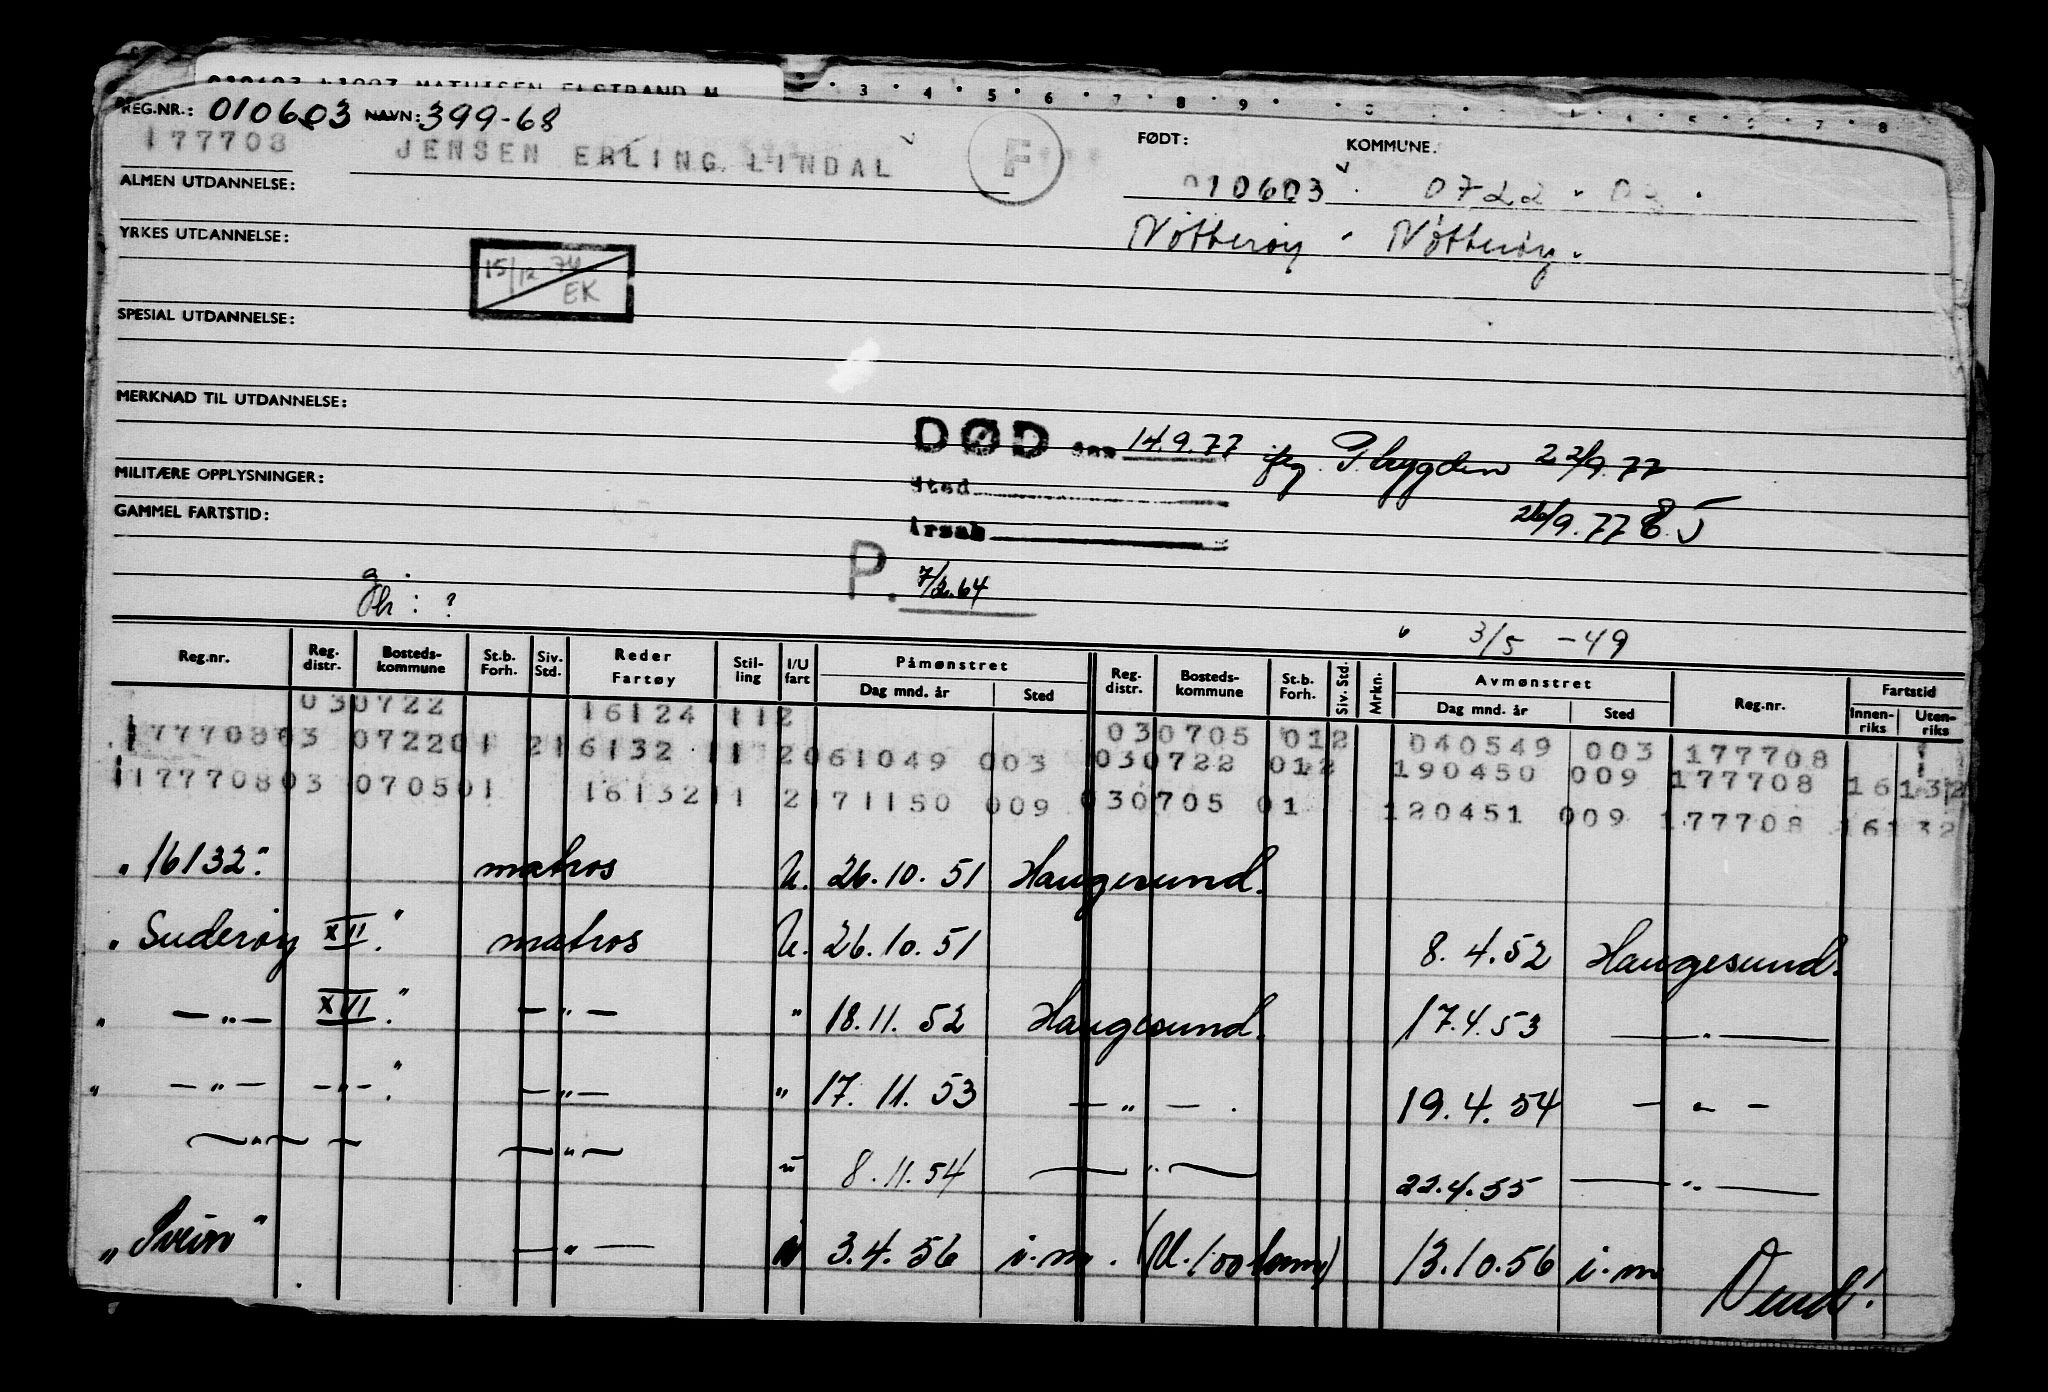 REG.NR.: 010603 NAVN: 399-68
177708 JENSEN ERLING LINDAL F
FØDT: KOMMUNE.
010603 0722
Nøtterøy Nøtterøy.
ALMEN UTDANNELSE:
YRKES UTDANNELSE:
15/12-74
EK
SPESIAL UTDANNELSE:
MERKNAD TIL UTDANNELSE:
DØD den 14.9.77 22/9.77
MILITÆRE OPPLYSNINGER:
Sted
26/9.77
GAMMEL FARTSTID:
Årsak
P. 7/2.64
?
" 3/5 -49
Reg.nr. Reg. distr. Bosteds-kommune St.b. Forh. Siv. Std. Reder Fartøy Stil-ling I/U fart Påmønstret Dag mnd. år Sted Reg. distr. Bosteds-kommune St.b. Forh. Siv. Std. Mrkn. Avmønstret Dag mnd. år Sted Reg.nr. Fartstid Innen-riks Uten-riks
030722 16124 112 030705 012 040549 003 177708
17770803 072201 216132 11 2061049 003 030722 012 190450 009 177708 16132
117770803 070501 16132 11 2171150 009 030705 01 120451 009 177708 16132
"16132." matros U. 26.10.51 Haugesund.
"Suderøy XII." matros U. 26.10.51 8.4.52 Haugesund.
" —"— XVI." —"— " 18.11.52 Haugesund. 17.4.53 —"—
" —"— —"—." —"— " 17.11.53 —"—. 19.4.54 —"—
—"— — —"— " 8.11.54 —"— 22.4.55 —"—
"Svein" —"— 3.4.56 i.m. 13.10.56 i.m Vend!